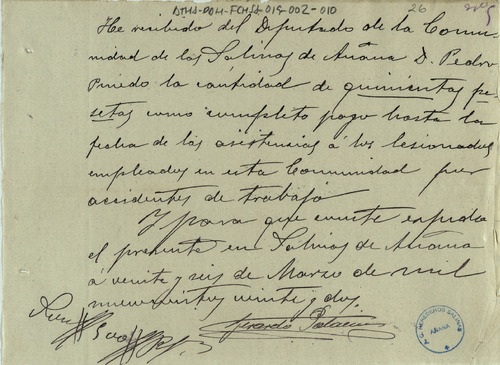 ATHA-DAH-FCHSA-019-002-010
26
He recibido del Diputado de la Comu-
nidad de las Salinas de Añana D. Pedro
Pinedo la cantidad de quinientas pe-
setas como completo pago hasta la
fecha de las asistencias a los lesionados
empleados en esta Comunidad por
accidentes de trabajo
Y para que conste expido
el presente en Salinas de Añana
á veinte y seis de Marzo de mil
novecientos veinte y dos
Gerardo Palacios
500
AÑANA